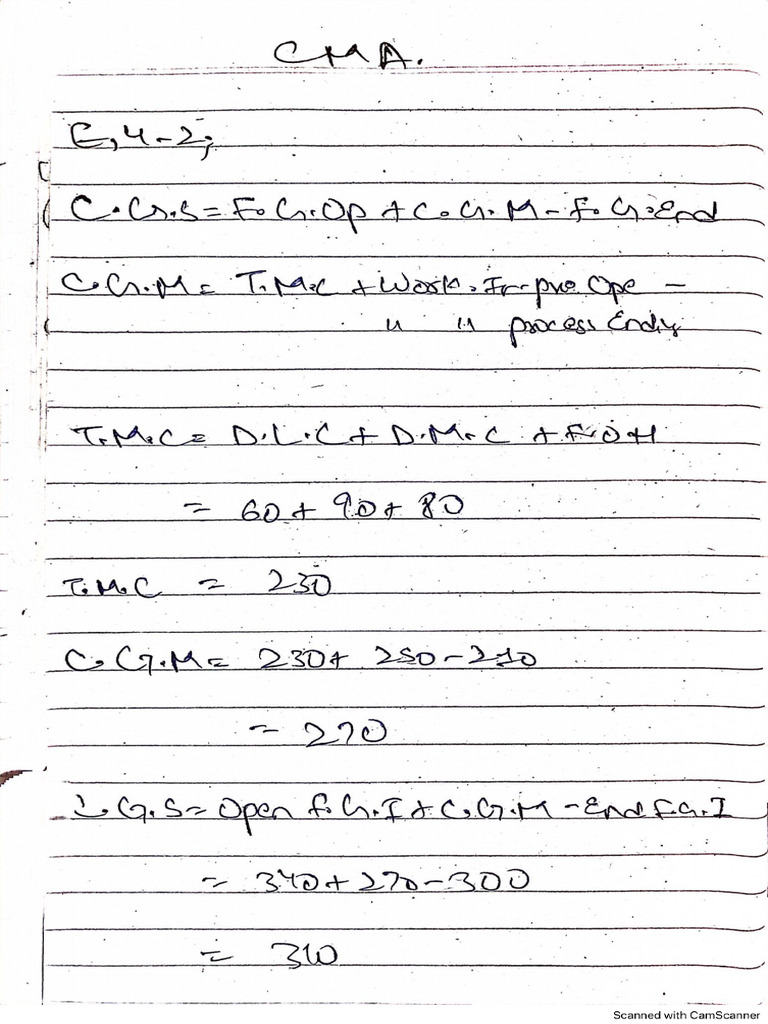 CMA.
E,4-2;
C.G.S = F.G.Op + C.G.M - F.G.End
C.G.M = T.M.C + Work.In-pro Ope -
" " process Ending
T.M.C = D.L.C + D.M.C + F.O.H
= 60 + 90 + 80
T.M.C = 230
C.G.M = 230 + 250 - 210
= 270
C.G.S = Open F.G.I + C.G.M - End F.G.I
= 340 + 270 - 300
= 310
Scanned with CamScanner